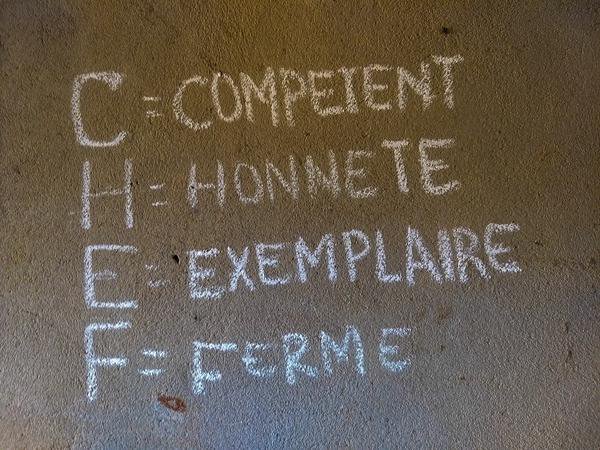 C = COMPETENT
H = HONNETE
E = EXEMPLAIRE
F = FERME